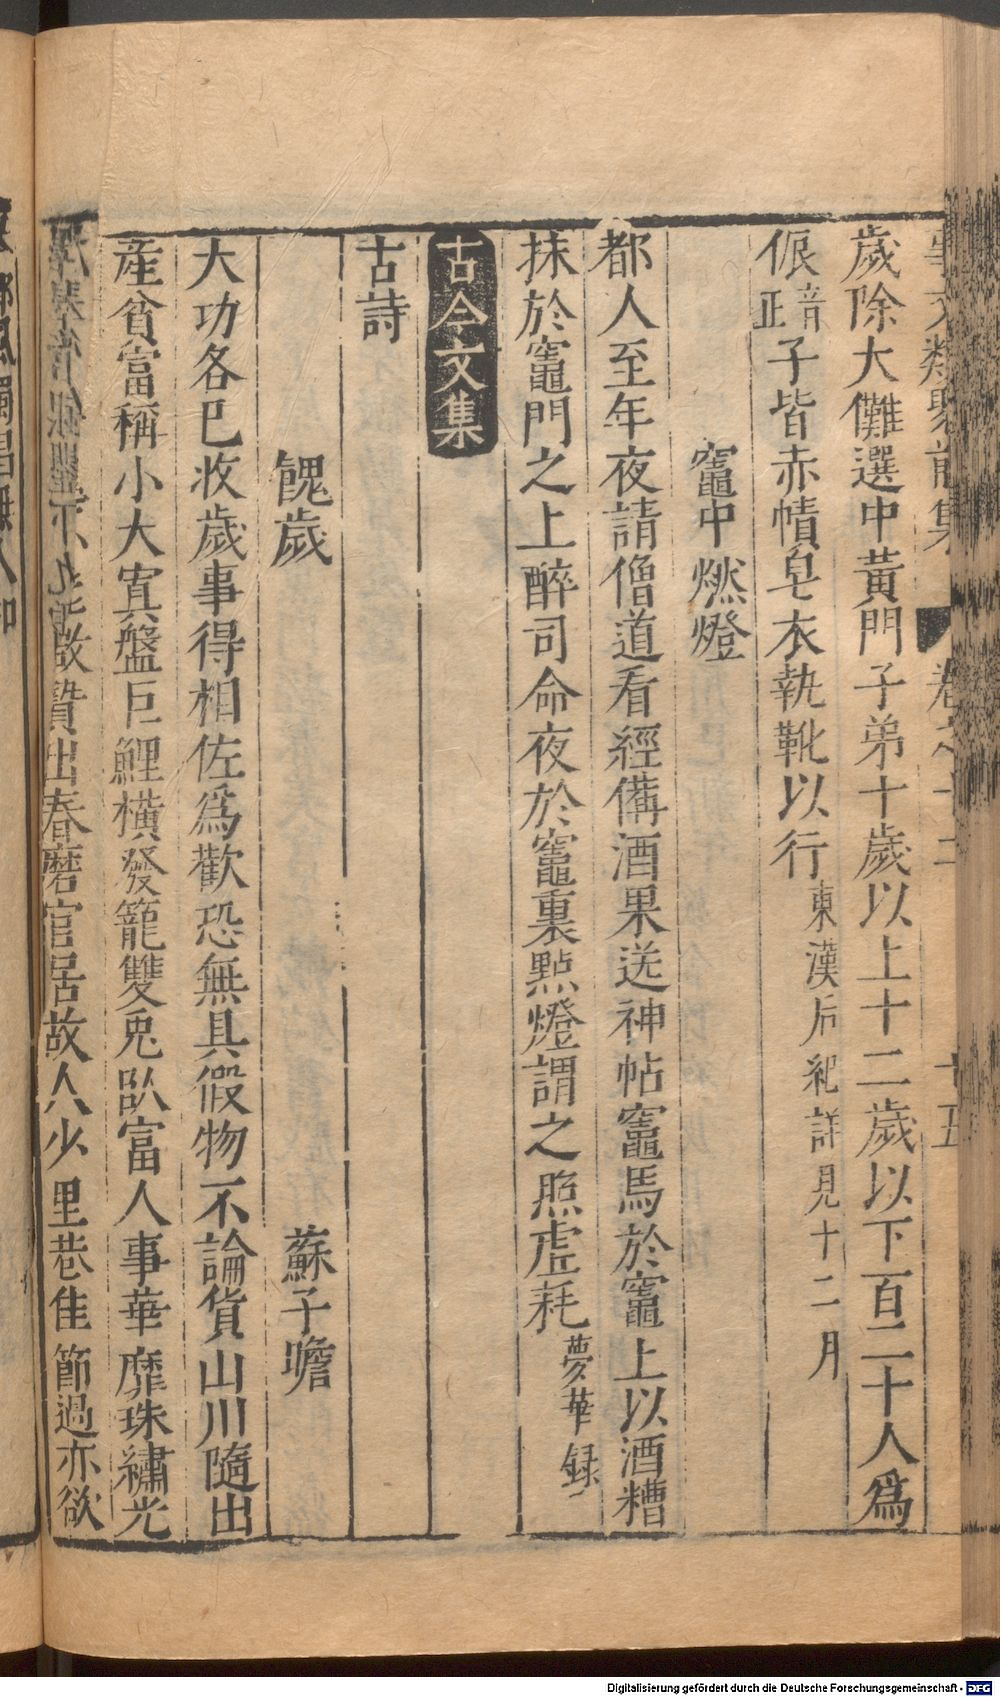 事文類聚前集 卷之十二 十五
歲除大儺選中黃門子弟十歲以上十二歲以下百二十人爲
侲音正子皆赤幘皂衣執鞉以行東漢后紀詳見十二月
竈中燃燈
都人至年夜請僧道看經備酒果送神帖竈馬於竈上以酒糟
抹於竈門之上醉司命夜於竈裏點燈謂之照虛耗夢華録
古今文集
古詩
餽歲 蘇子瞻
大功各巳收歲事得相佐爲歡恐無具假物不論貨山川隨出
産貧富稱小大寘盤巨鯉橫發籠雙兎臥富人事華靡珠繡光
敢贄出春磨官居故人少里巷佳節過亦欲
Digitalisierung gefördert durch die Deutsche Forschungsgemeinschaft - DFG